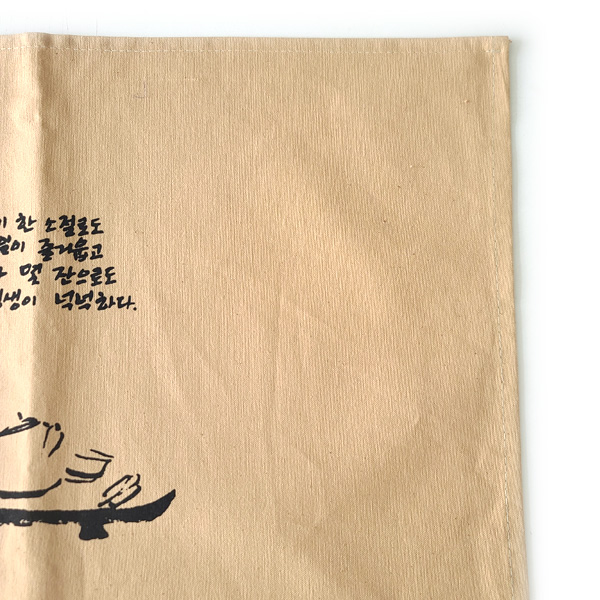 한 소절로도
즐거웁고
몇 잔으로도
넉넉하다.